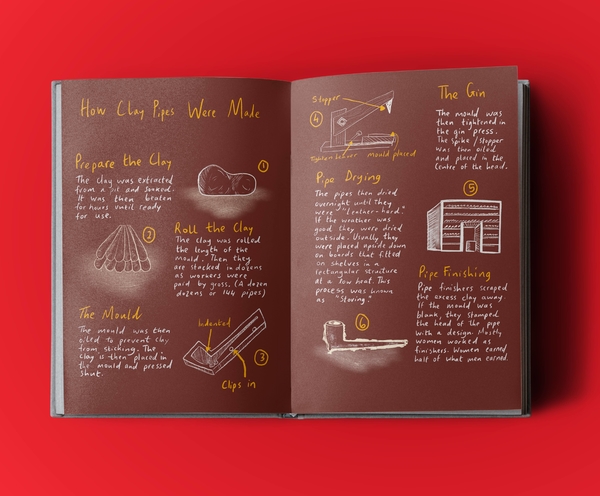 How Clay Pipes Were Made
Prepare the Clay
The clay was extracted
from a pit and soaked.
It was then beaten
for hours until ready
for use.
1
2
Roll the Clay
The clay was rolled
the length of the
mould. Then they
are stacked in dozens
as workers were
paid by gross. (A dozen
dozens or 144 pipes)
The Mould
The mould was then
oiled to prevent clay
from sticking. The
clay is then placed in
the mould and pressed
shut.
Indented
3
Clips in
Stopper
4
Tighten Leaver mould placed
The Gin
The mould was
then tightened in
the gin press.
The spike / stopper
was then oiled
and placed in the
centre of the head.
Pipe Drying
The pipes then dried
overnight until they
were "Leather-hard."
If the weather was
good they were dried
outside. Usually they
were placed upside down
on boards that fitted
on shelves in a
rectangular structure
at a low heat. This
process was known
as "Stoving."
5
Pipe Finishing
Pipe finishers scraped
the excess clay away.
If the mould was
blank, they stamped
the head of the pipe
with a design. Mostly
women worked as
finishers. Women earned
half of what men earned.
6